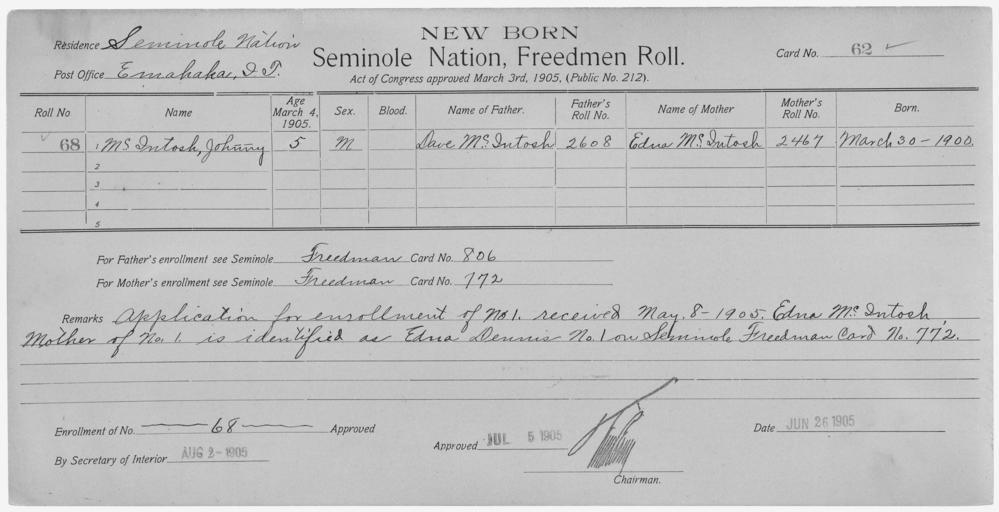 NEW BORN
Residence Seminole Nation
Seminole Nation, Freedmen Roll.
Card No. 62
Post Office Emahaka, I. T.
Act of Congress approved March 3rd, 1905, (Public No. 212).
Roll No Name Age March 4, 1905. Sex. Blood. Name of Father. Father's Roll No. Name of Mother Mother's Roll No. Born.
68 1 McIntosh, Johnny 5 M Dave McIntosh 2608 Edna McIntosh 2467 March 30 - 1900.
2
3
4
5
For Father's enrollment see Seminole Freedman Card No. 806
For Mother's enrollment see Seminole Freedman Card No. 772
Remarks Application for enrollment of No 1. received May. 8 - 1905. Edna McIntosh,
Mother of No. 1. is identified as Edna Dennis No. 1 on Seminole Freedman Card No. 772.
Enrollment of No. 68 Approved
Approved JUL 5 1905
Date JUN 26 1905
By Secretary of Interior AUG 2 - 1905
Chairman.